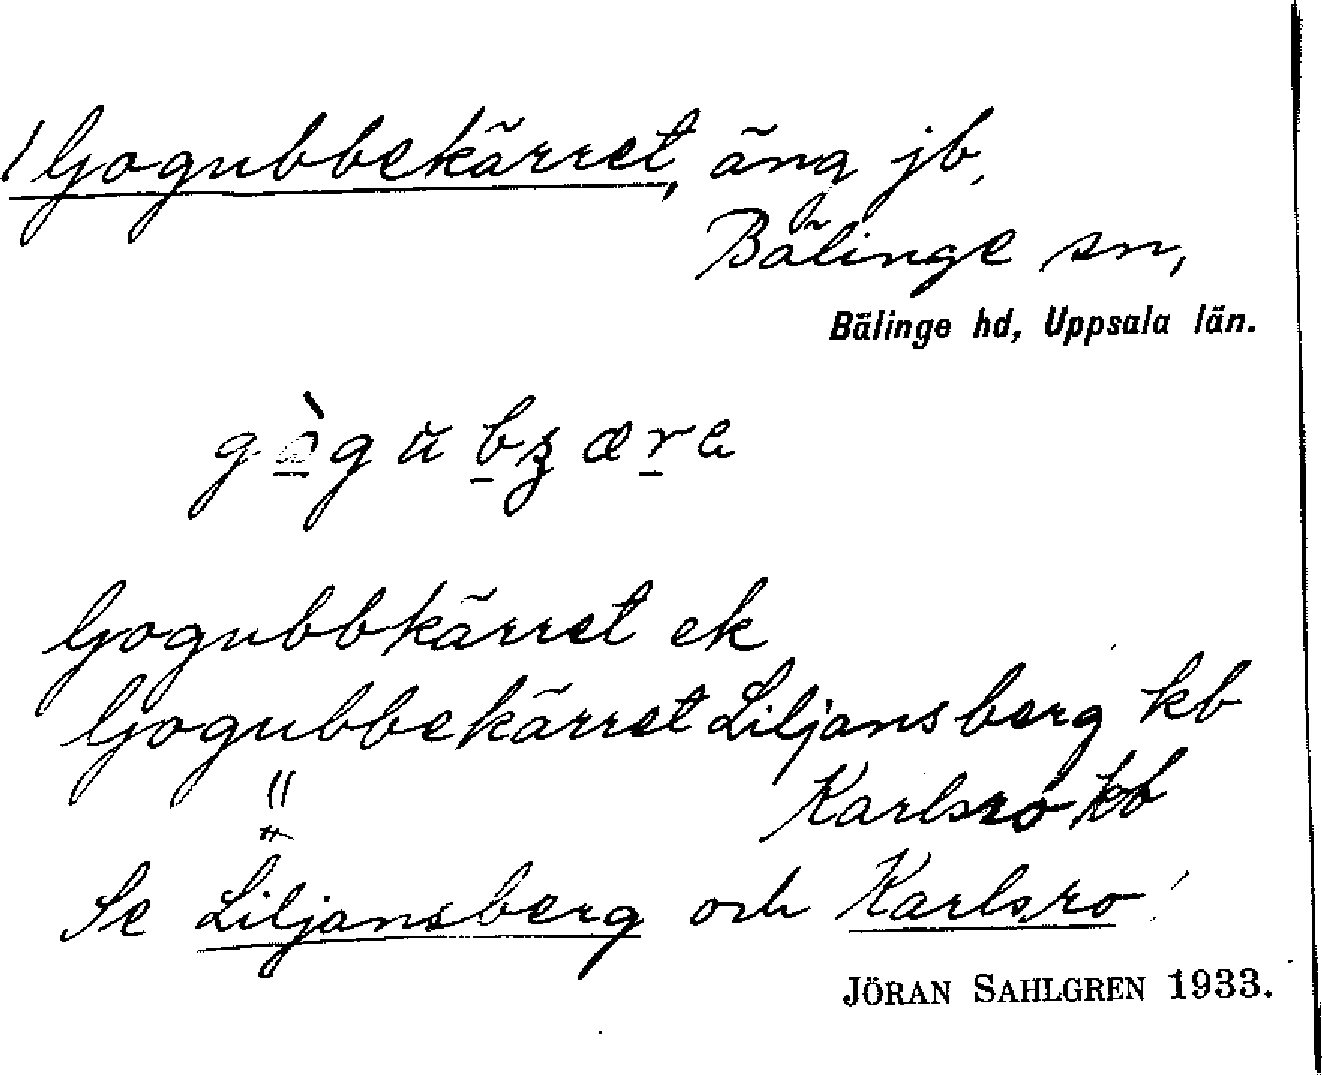 1 Gogubbekärret, äng jb,
Bälinge sn,
Bälinge hd, Uppsala län.
Gogubbkärret ek
Gogubbekärret Liljansberg kb
" Karlsro kb
Se Liljansberg och Karlsro!
JÖRAN SAHLGREN 1933.